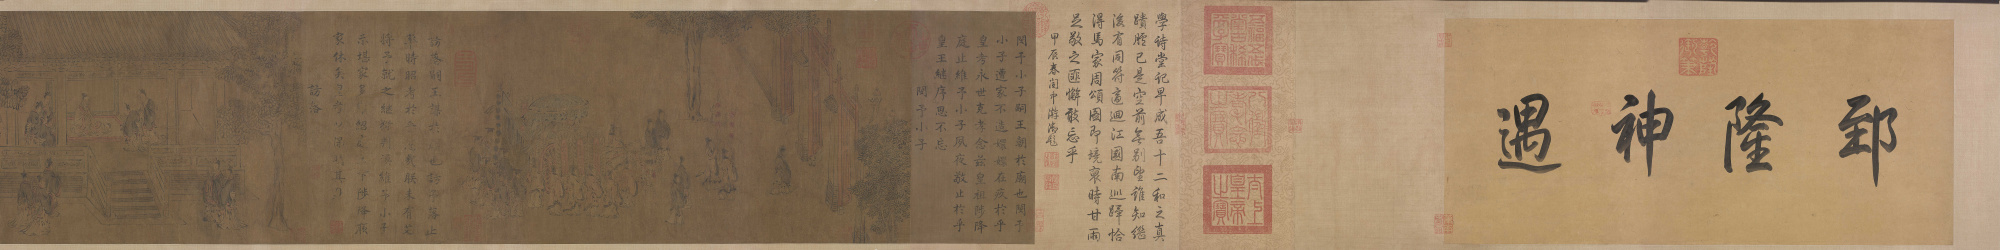 郅隆神遇
太上皇帝之寶
學詩堂記早成吾十二和之真
蹟臚已是空前無別望誰知繼
後有同符適迴江國南巡蹕恰
得馬家周頌圖即境衷時甘雨
足敬之匪懈敢忘乎
甲辰春閏中游御題
閔予小子嗣王朝於廟也閔予
小子遭家不造嬛嬛在疚於乎
皇考永世克孝念茲皇祖陟降
庭止維予小子夙夜敬止於乎
皇王繼序思不忘
閔予小子
訪落嗣王謀於廟也訪予落止
率時昭考於乎悠哉朕未有艾
將予就之繼猶判渙維予小子
未堪家多難紹庭上下陟降厥
家休矣皇考以保明其身
訪落